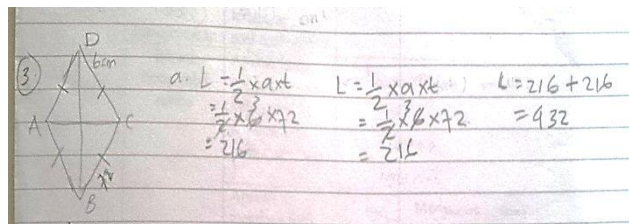 3
D
6cm
A
C
72
B
a. L = 1/2 × a × t
= 1/2 × 6 3 × 72
= 216
L = 1/2 × a × t
= 1/2 × 6 3 × 72
= 216
L = 216 + 216
= 432